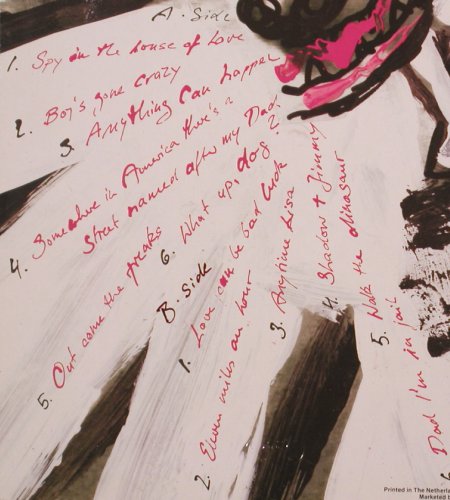 A. Side
1. Spy in the house of Love
2. Boj's gone crazy
3. Anything Can happen
4. Somewhere in America there's a
Street named after my Dad
5. Out come the freaks
6. What up, dog?
B. Side
1. Love can be bad Luck
2. Eleven miles an hour
3. Anytime Lisa
4. Shadow + Jimmy
5. Walk the dinasaur
6. Dad I'm in jail
Printed in The Netherla
Marketed b